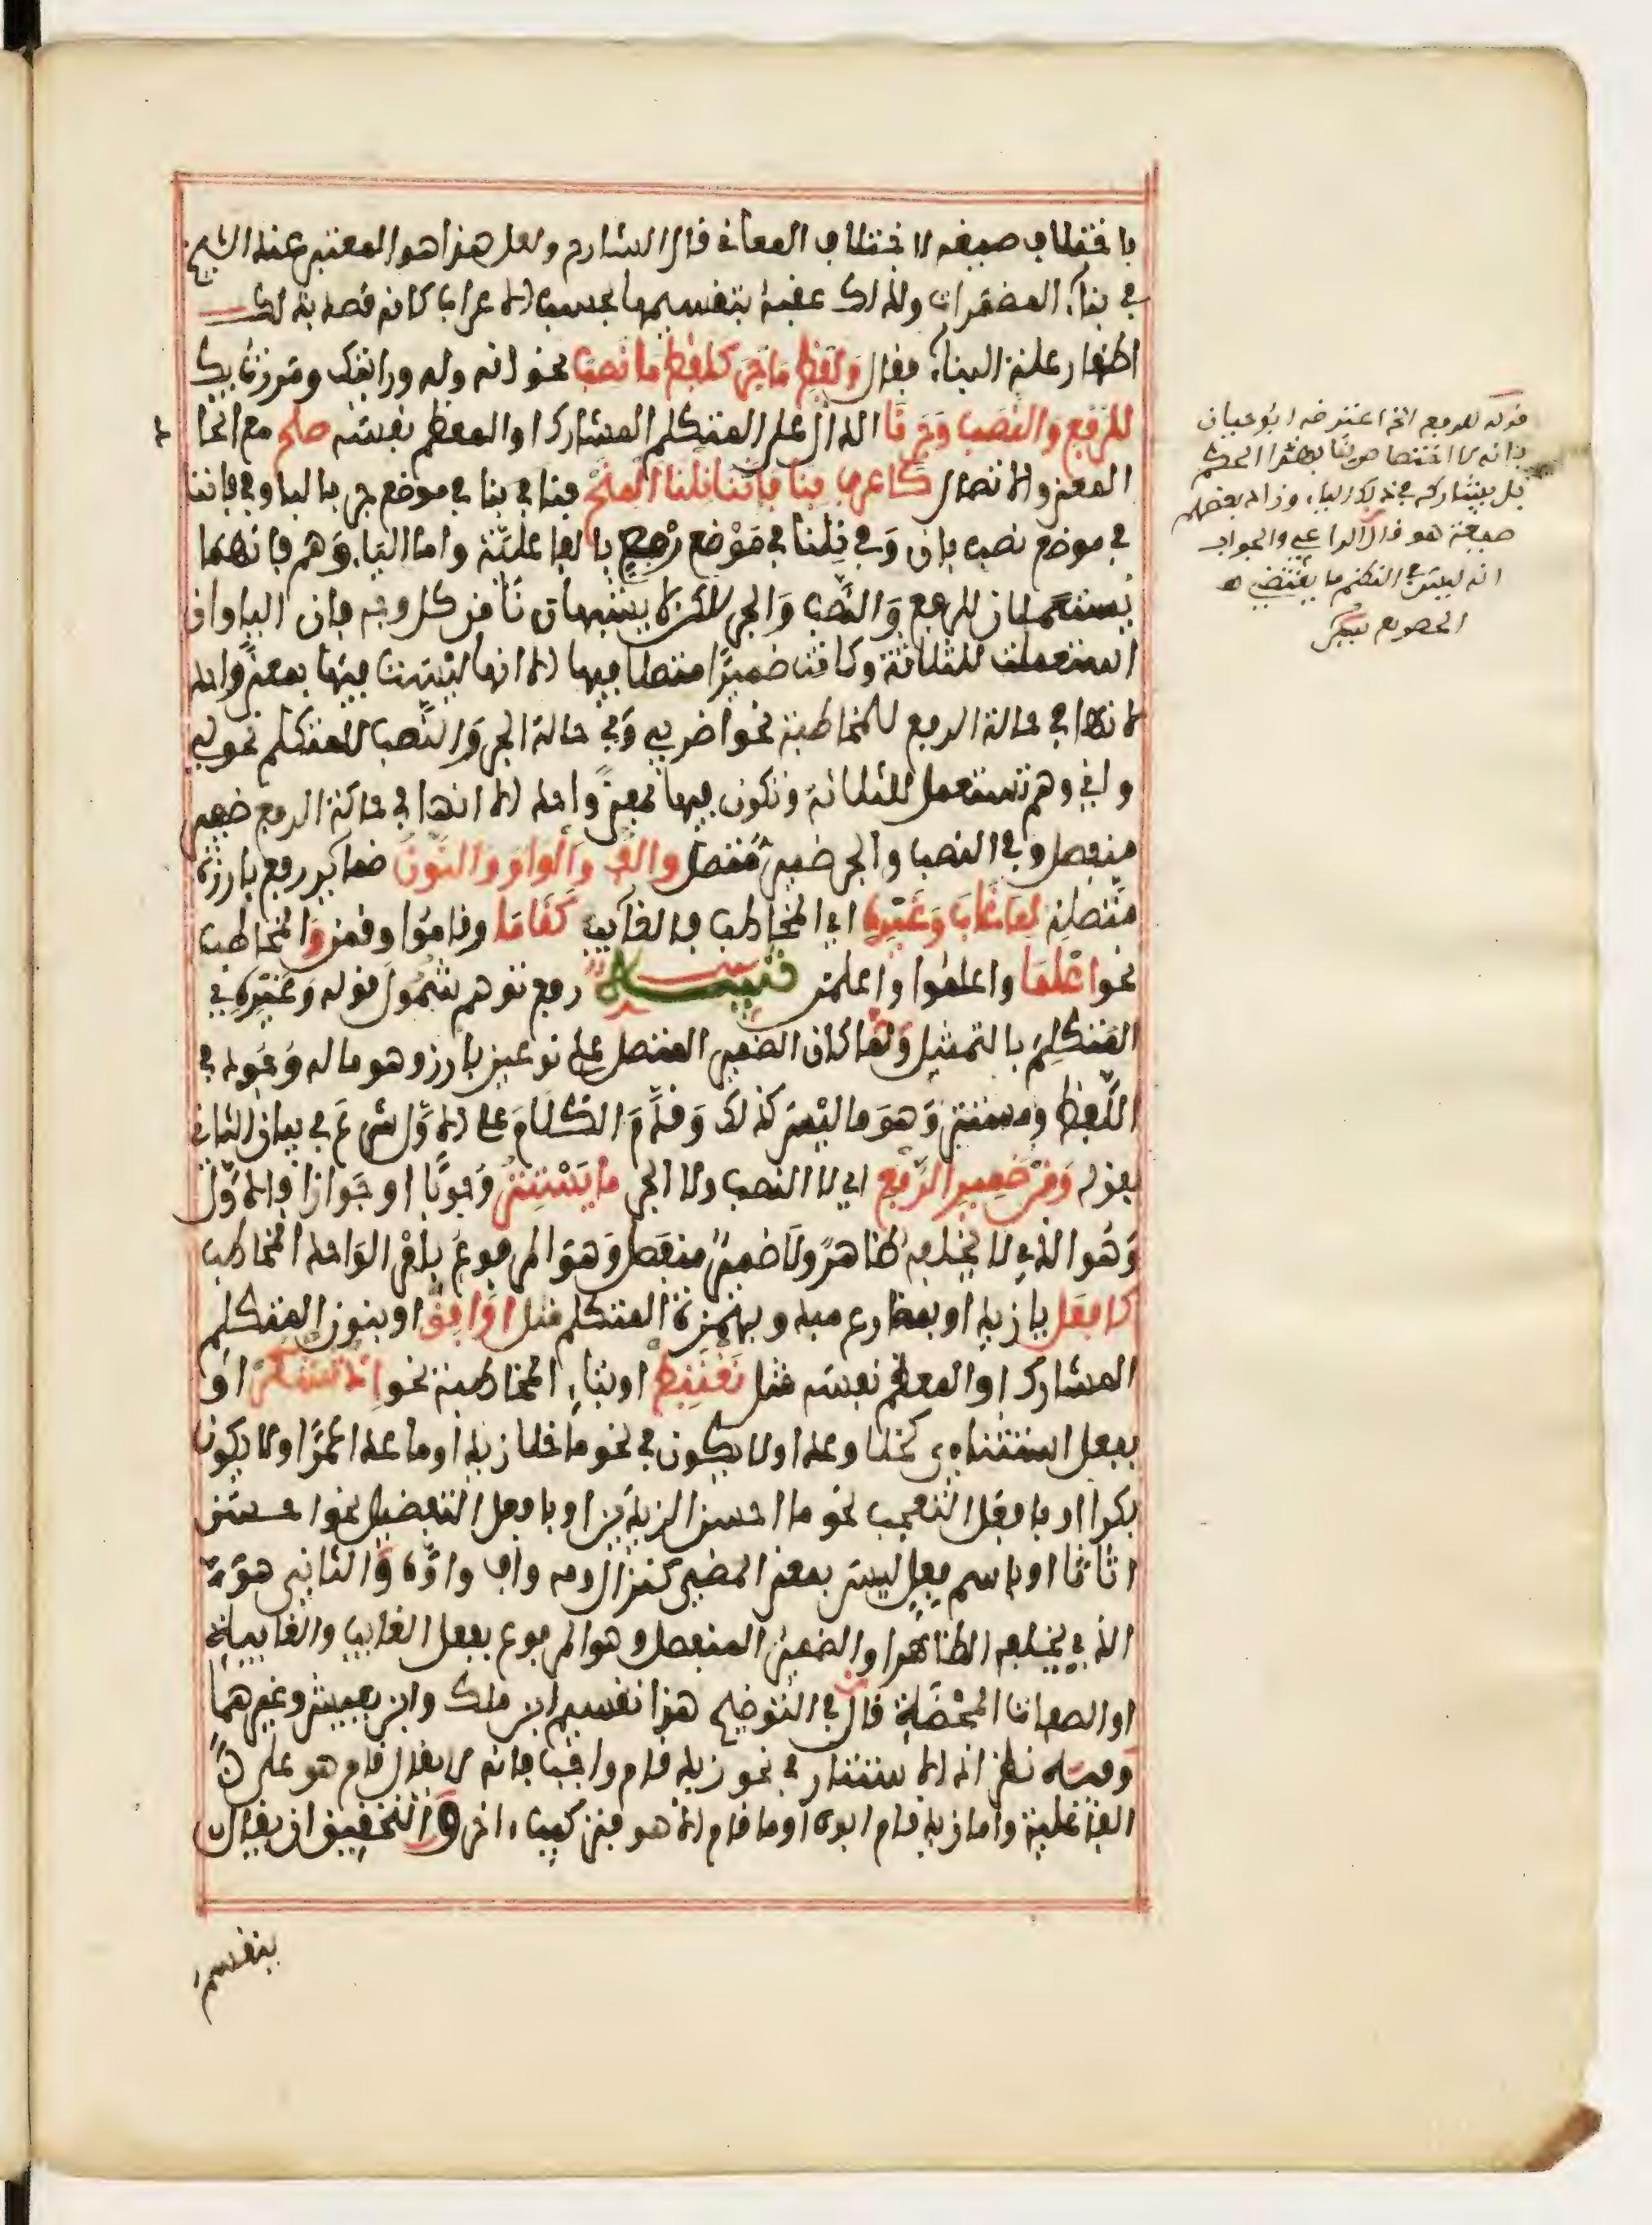 باختلاف صيغه لاختلاف المعاني قال الشارح ولعل هذا هو المعتبر عند الشيخ
في بناء المضمرات ولذلك عقبه بتقسيمها بحسب الاعراب كانه قصد بذلك
اظهار علة البناء فقال وَلَفظُ مَا جُرَّ كلفظِ ما نُصِبْ نحو انه وله ورايتك ومررت بك
للرَّفع والنَّصب وَجَرٍّ نَا الدال على المتكلم المشارك او المعظم نفسه صلح مع اتحاد
المعنى والاتصال كَاعرف بنا فإننا نلنا المِنَحْ فنا في بنا في موضع جر بالباء وفي فاننا
في موضع نصب بان وَفي نِلنا في مَوْضع رفع بالفاعلية واما الياء وَهم فانهما
يُستعملان للرفع وَالنَّصب وَالجر لكن لا يشبهان نَا من كل وجه فان الياء وان
استعملت للثلاثة وكانت ضميرًا متصلا فيها الا انها ليست فيها بمعنى واحد
لانها في حالة الرفع للمخاطبة نحو اضربي وَفي حالة الجر وَالنَّصب للمتكلم نحو لي
واني وهم تستعمل للثلاثة وتكون فيها بمعنى واحد الا انها في حالة الرفع ضمير
منفصل وفي النصب والجر ضمير متصل وَالف والواو والنون ضماير رفع بارزة
متصلة لِمَا غابَ وَغَيْرِهِ اي المخاطب فالغايب كَقَامَا وقامُوا وقمن وَالمخاطب
نحو اعْلَمَا واعلموا واعلمن تنبيـــه رفع توهم شُمُول قوله وَغَيْرِهِ في
المُتكلِّم بالتمثيل وَلما كان الضمير المتصل على نوعين بارز وهو ما له وُجُود في
اللَّفظ ومستتر وَهوَ ما ليْسَ كذلك وَقدَّمَ الكلام على الاوَّل شرع في بيان الثاني
بقوله وَمِن ضَمِير الرَّفع اي لا النصب ولا الجر ما يَسْتتِر وُجوبًا او جَوازا فالاوَّل
وَهُوَ الذي لا يخلفه ظاهرٌ ولَا ضميرٌ منفصل وَهوَ المرفوعُ بامر الواحد المخاطب
كافعَل يا زيد او بمضارع مبدو بهمزة المتكلم مثل اوَافِقْ او بنون المتكلم
المشارك او المعظم نفسه مثل نَغْتَبِطْ او بتاء المخاطبة نحو إذ تَشكُرُ او
بفعل استثناء كخلا وعدا ولا يكون في نحو ما خلا زيدا وما عدا عمرًا ولا يكون
بكرا او بافعل التعجب نحو ما احسن الزيدين او بافعل التفضيل نحو احسن
اثاثا او باسم فِعلٍ ليس بمعنى المضي كنزال ومه واف واوَّه وَالثاني هوَ
الذي يخلفه الظاهر او الضمير المنفصل وهو المرفوع بفعل الغايب والغايبة
او الصفات المحْضَة قال في التوضيح هذا تقسيم ابن ملك وابن يعيش وغيرهما
وفيـه نظر اذ الاستتار في نحو زيد قام واجب فانه لا يقال قام هو على
الفاعلية واما زيد قام ابوه او ما قام الا هو فتركيب اخر وَالتحقيق ان يقال
ينقسم
قوله للرفع الخ اعترضه ابو حيان
بانه لا اختصاص لنا بهذا الحكم
بل يشاركه في ذلك الياء وزاد بعضهم
صيغة هو قال الراعي والجواب
انه ليس في النظم ما يقتضي
الحصر